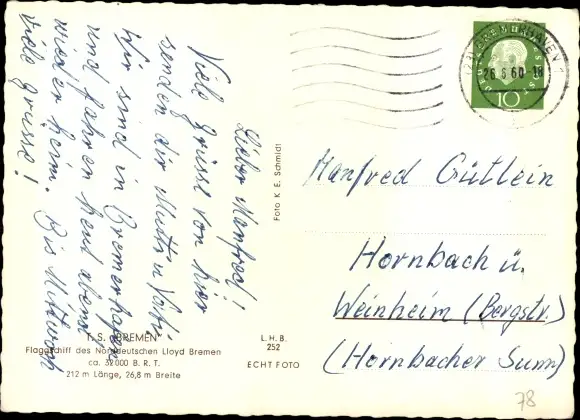 Lieber Manfred!
Viele Grüsse von hier
senden dir Mutti u. Vati.
Wir sind in Bremerhafen
und fahren heut abend
wieder heim. Bis Mittwoch
viele Grüsse!
T. S. „BREMEN"
Flaggschiff des Norddeutschen Lloyd Bremen
ca. 32000 B. R. T.
212 m Länge, 26,8 m Breite
L. H. B.
252
ECHT FOTO
Foto K. E. Schmidt
BREMERHAVEN
26.6.60-18
10
Manfred Gütlein
Hornbach ü.
Weinheim (Bergstr.)
(Hornbacher
78